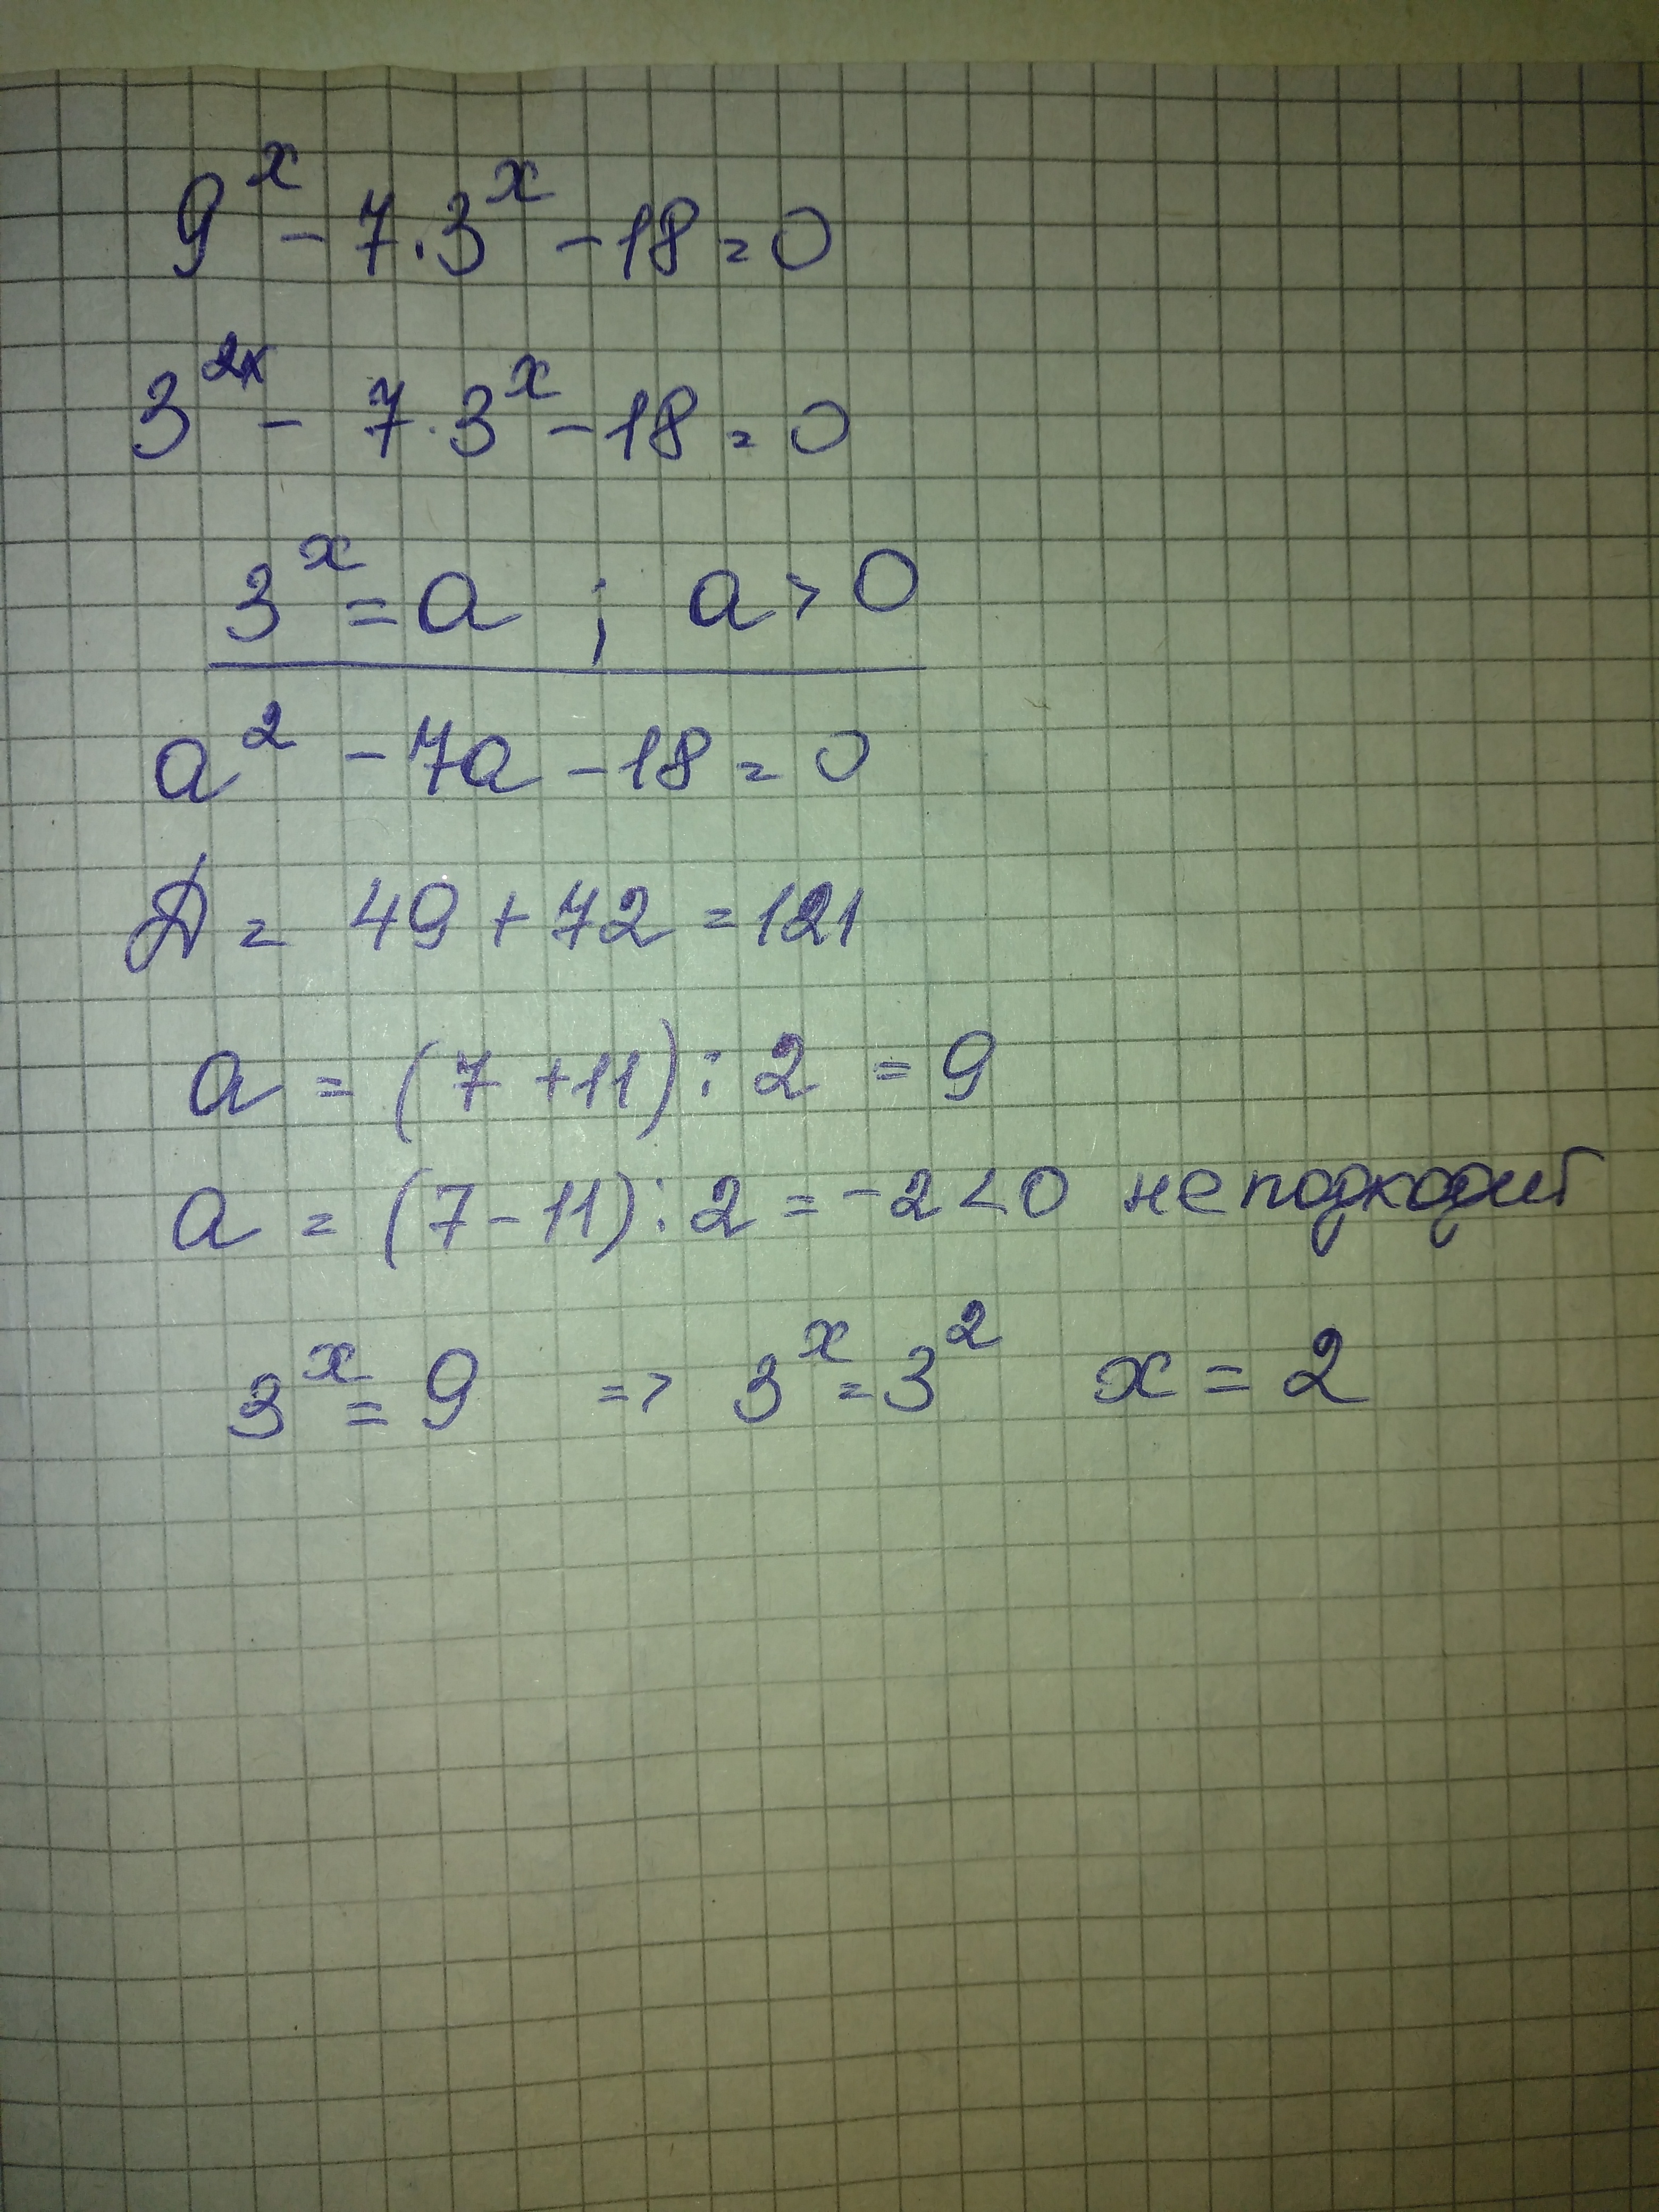 9^x - 7·3^x - 18 = 0
3^2x - 7·3^x - 18 = 0
3^x = a ; a > 0
a^2 - 7a - 18 = 0
Д = 49 + 72 = 121
a = (7 + 11) : 2 = 9
a = (7 - 11) : 2 = -2 < 0 не подходит
3^x = 9 => 3^x = 3^2 x = 2